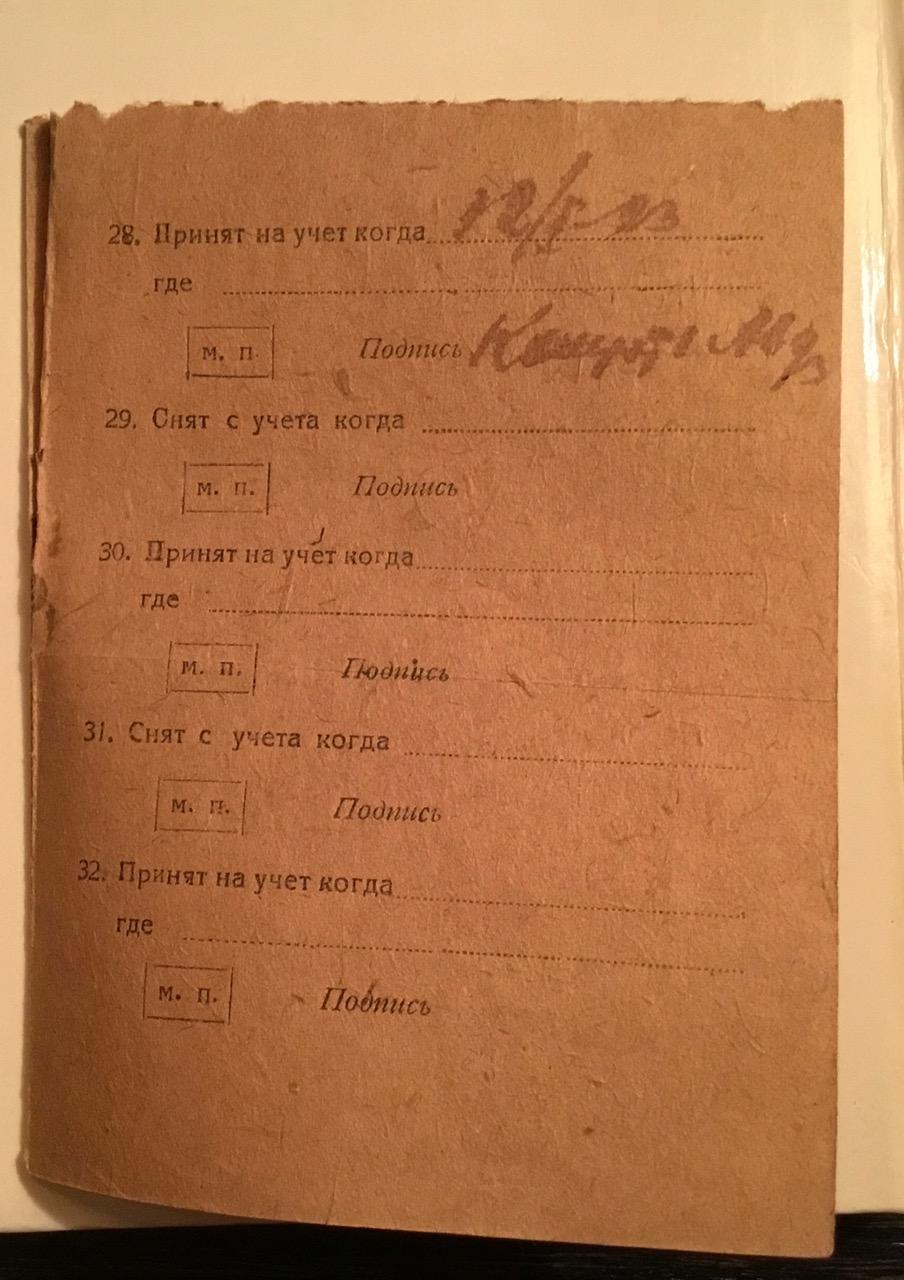 28. Принят на учет когда
где
м. п. Подпись
29. Снят с учета когда
м. п. Подпись
30. Принят на учет когда
где
м. п. Подпись
31. Снят с учета когда
м. п. Подпись
32. Принят на учет когда
где
м. п. Подпись